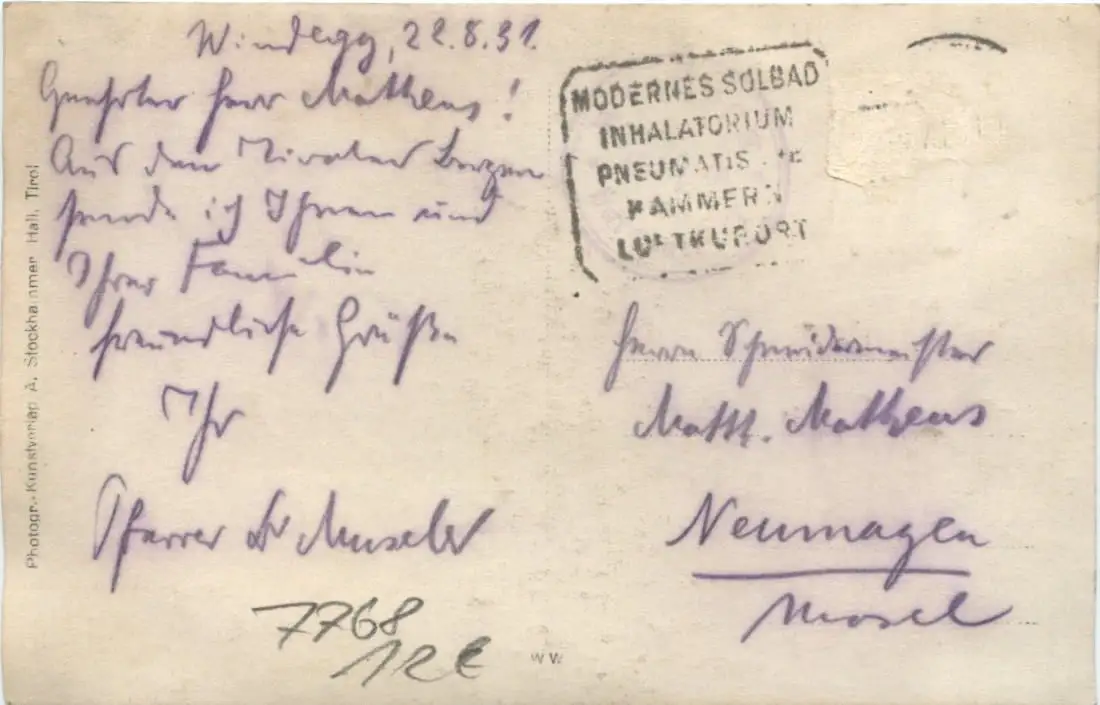 Windegg, 22.8.31.
Geehrter Herr Mathens!
Aus den Tiroler Bergen
sende ich Ihnen und
Ihrer Familie
freundliche Grüße
Ihr
Pfarrer Dr Museler
MODERNES SOLBAD
INHALATORIUM
PNEUMATISCHE
KAMMERN
LUFTKURORT
Herrn Schneidermeister
Matth. Mathens
Neumagen
Mosel
Photogr.-Kunstverlag A. Stockhammer Hall, Tirol
7768
12€
WW